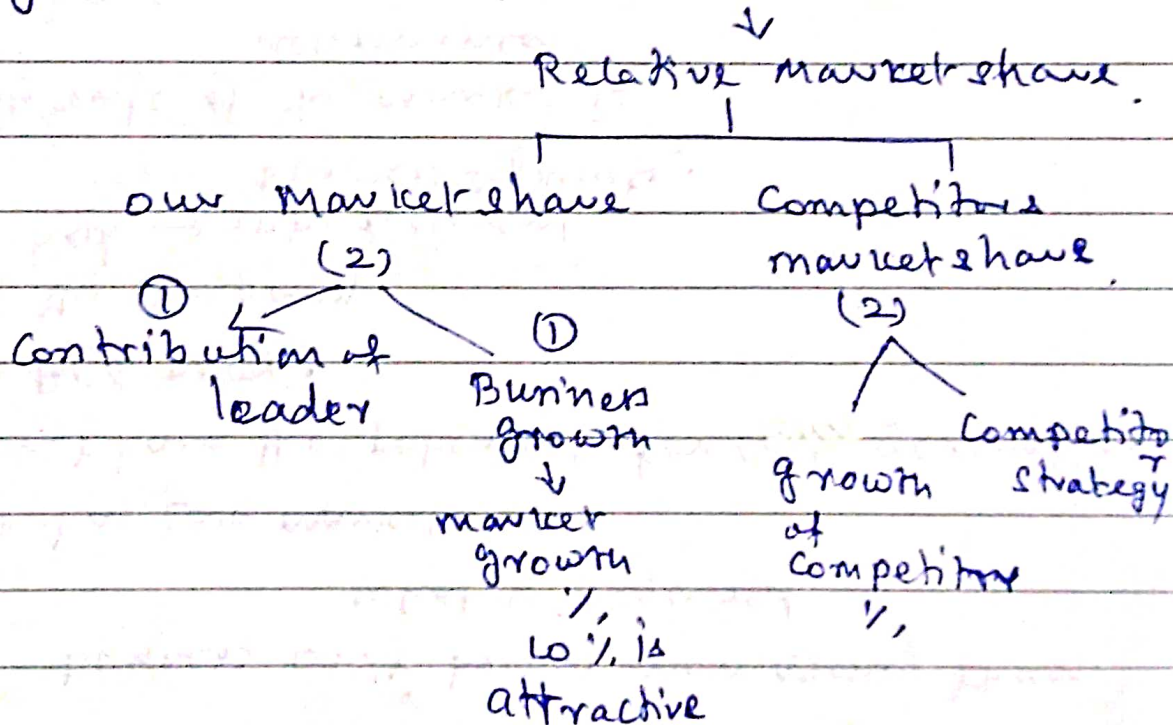 Relative Market share.
our Market share
(2)
① Contribution of
leader
① Business
growth
↓
market
growth
%
10% is
attractive
Competitors
market share.
(2)
growth
of
Competitors
%
Competitor
strategy